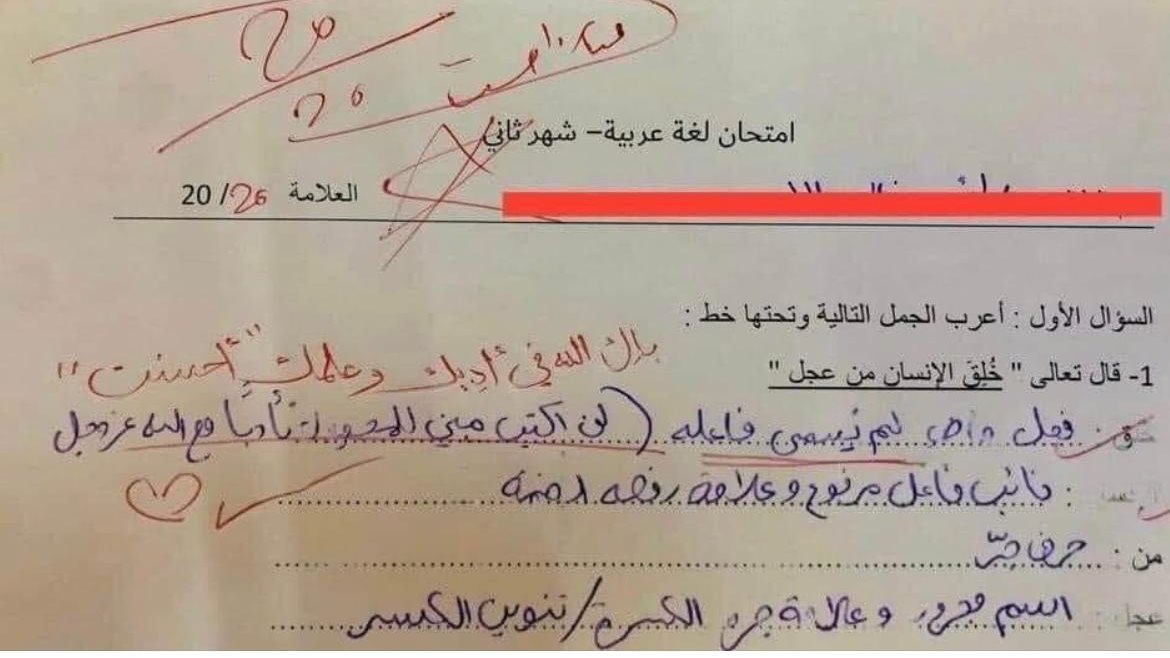 20
20
امتحان لغة عربية – شهر ثاني
العلامة 20 / 20
السؤال الأول : أعرب الجمل التالية وتحتها خط :
1- قال تعالى " خُلِقَ الإنسان من عجل "
بارك الله في أدبك وعلمك "أحسنت"
خلق : فعل ماضٍ لم يُسمى فاعله (لن اكتب مبني للمجهول تأدبًا مع الله عز وجل
الإنسان : نائب فاعل مرفوع وعلامة رفعه الضمة
من : حرف جرّ
عجل : اسم مجرور وعلامة جره الكسرة/تنوين الكسر